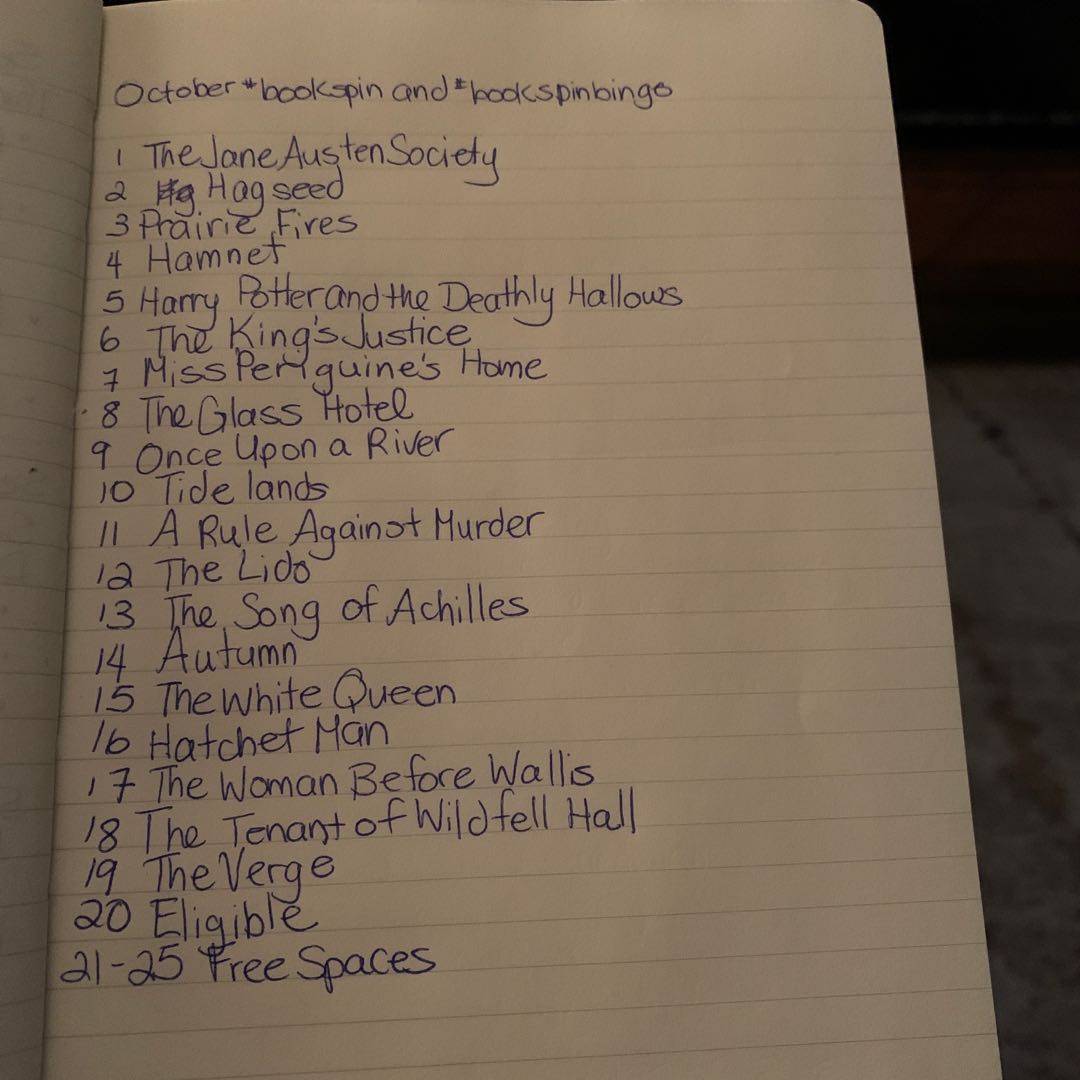 October #bookspin and #bookspinbingo
1 The Jane Austen Society
2 Hag seed
3 Prairie Fires
4 Hamnet
5 Harry Potter and the Deathly Hallows
6 The King's Justice
7 Miss Periguine's Home
8 The Glass Hotel
9 Once Upon a River
10 Tide lands
11 A Rule Against Murder
12 The Lido
13 The Song of Achilles
14 Autumn
15 The White Queen
16 Hatchet Man
17 The Woman Before Wallis
18 The Tenant of Wildfell Hall
19 The Verge
20 Eligible
21-25 Free Spaces